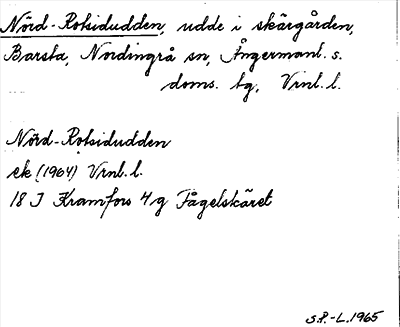 Nörd-Rotsidudden, udde i skärgården,
Barsta, Nordingrå sn, Ångermanl. s.
doms. tg, Vrnl. l.
Nörd-Rotsidudden
ek (1964) Vrnl. l.
18 I Kramfors 4 g Fågelskäret
S.P.-L. 1965